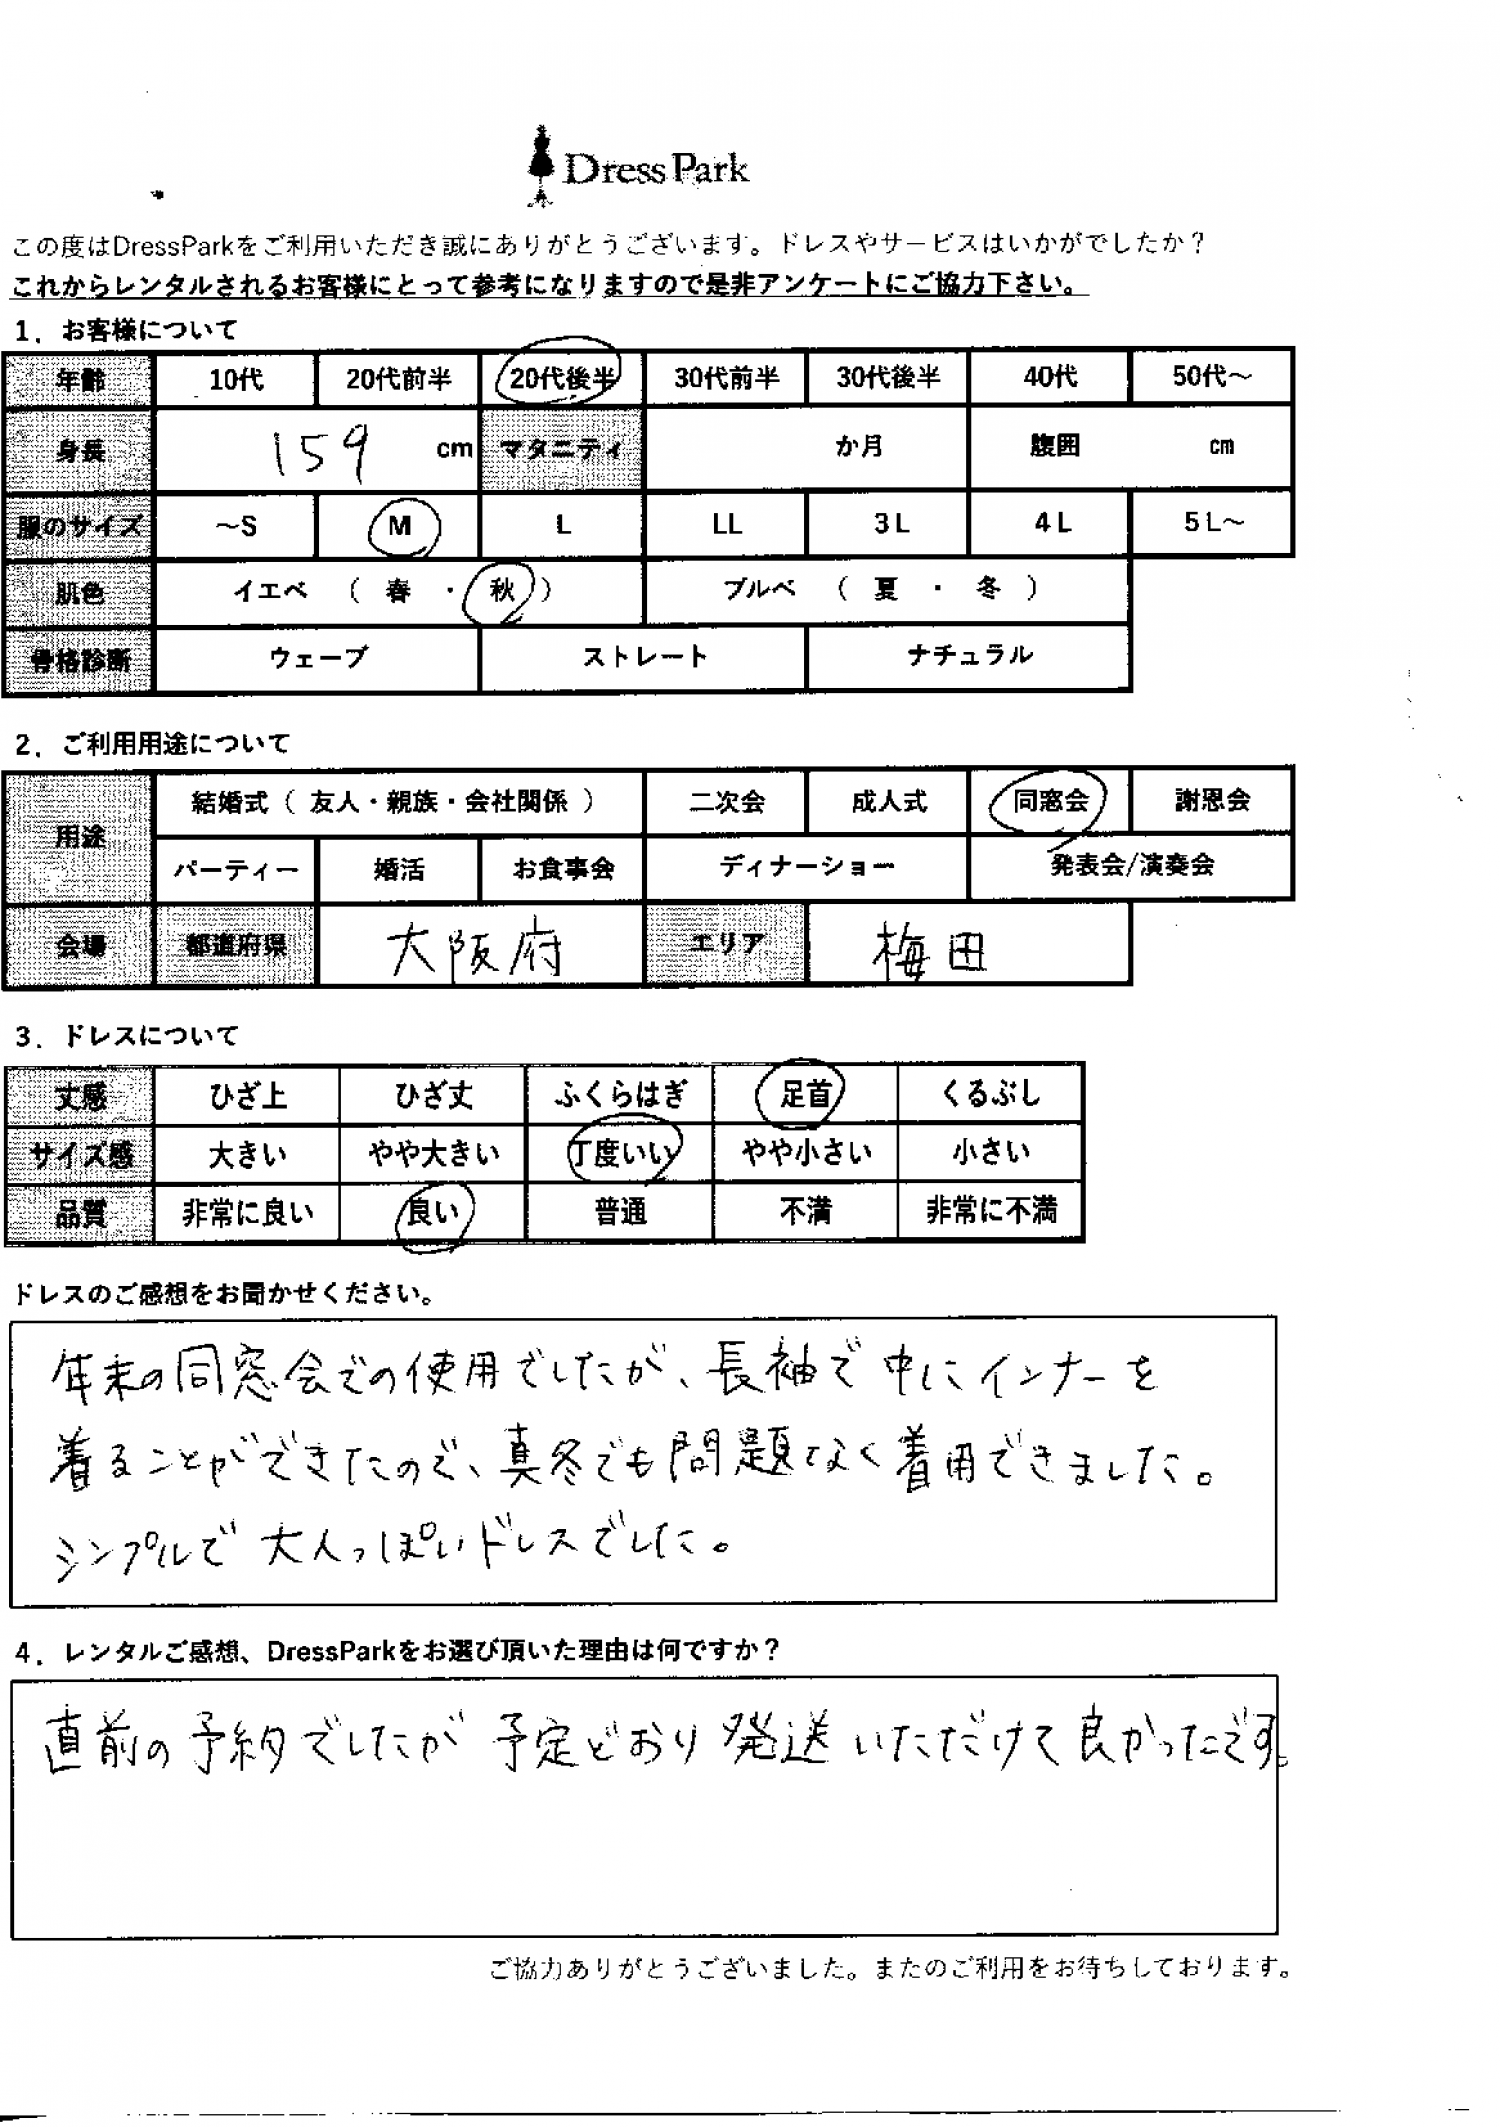 Dress Park
この度はDressParkをご利用いただき誠にありがとうございます。ドレスやサービスはいかがでしたか？
これからレンタルされるお客様にとって参考になりますので是非アンケートにご協力下さい。
1．お客様について
年齢 10代 20代前半 20代後半 30代前半 30代後半 40代 50代～
身長 159 cm マタニティ か月 腹囲 cm
服のサイズ ～S M L LL 3L 4L 5L～
肌色 イエベ （ 春 ・ 秋 ） ブルベ （ 夏 ・ 冬 ）
骨格診断 ウェーブ ストレート ナチュラル
2．ご利用用途について
用途 結婚式（ 友人・親族・会社関係 ） 二次会 成人式 同窓会 謝恩会
パーティー 婚活 お食事会 ディナーショー 発表会/演奏会
会場 都道府県 大阪府 エリア 梅田
3．ドレスについて
丈感 ひざ上 ひざ丈 ふくらはぎ 足首 くるぶし
サイズ感 大きい やや大きい 丁度いい やや小さい 小さい
品質 非常に良い 良い 普通 不満 非常に不満
ドレスのご感想をお聞かせください。
年末の同窓会での使用でしたが、長袖で中にインナーを
着ることができたので、真冬でも問題なく着用できました。
シンプルで大人っぽいドレスでした。
4．レンタルご感想、DressParkをお選び頂いた理由は何ですか？
直前の予約でしたが予定どおり発送いただけて良かったです。
ご協力ありがとうございました。またのご利用をお待ちしております。